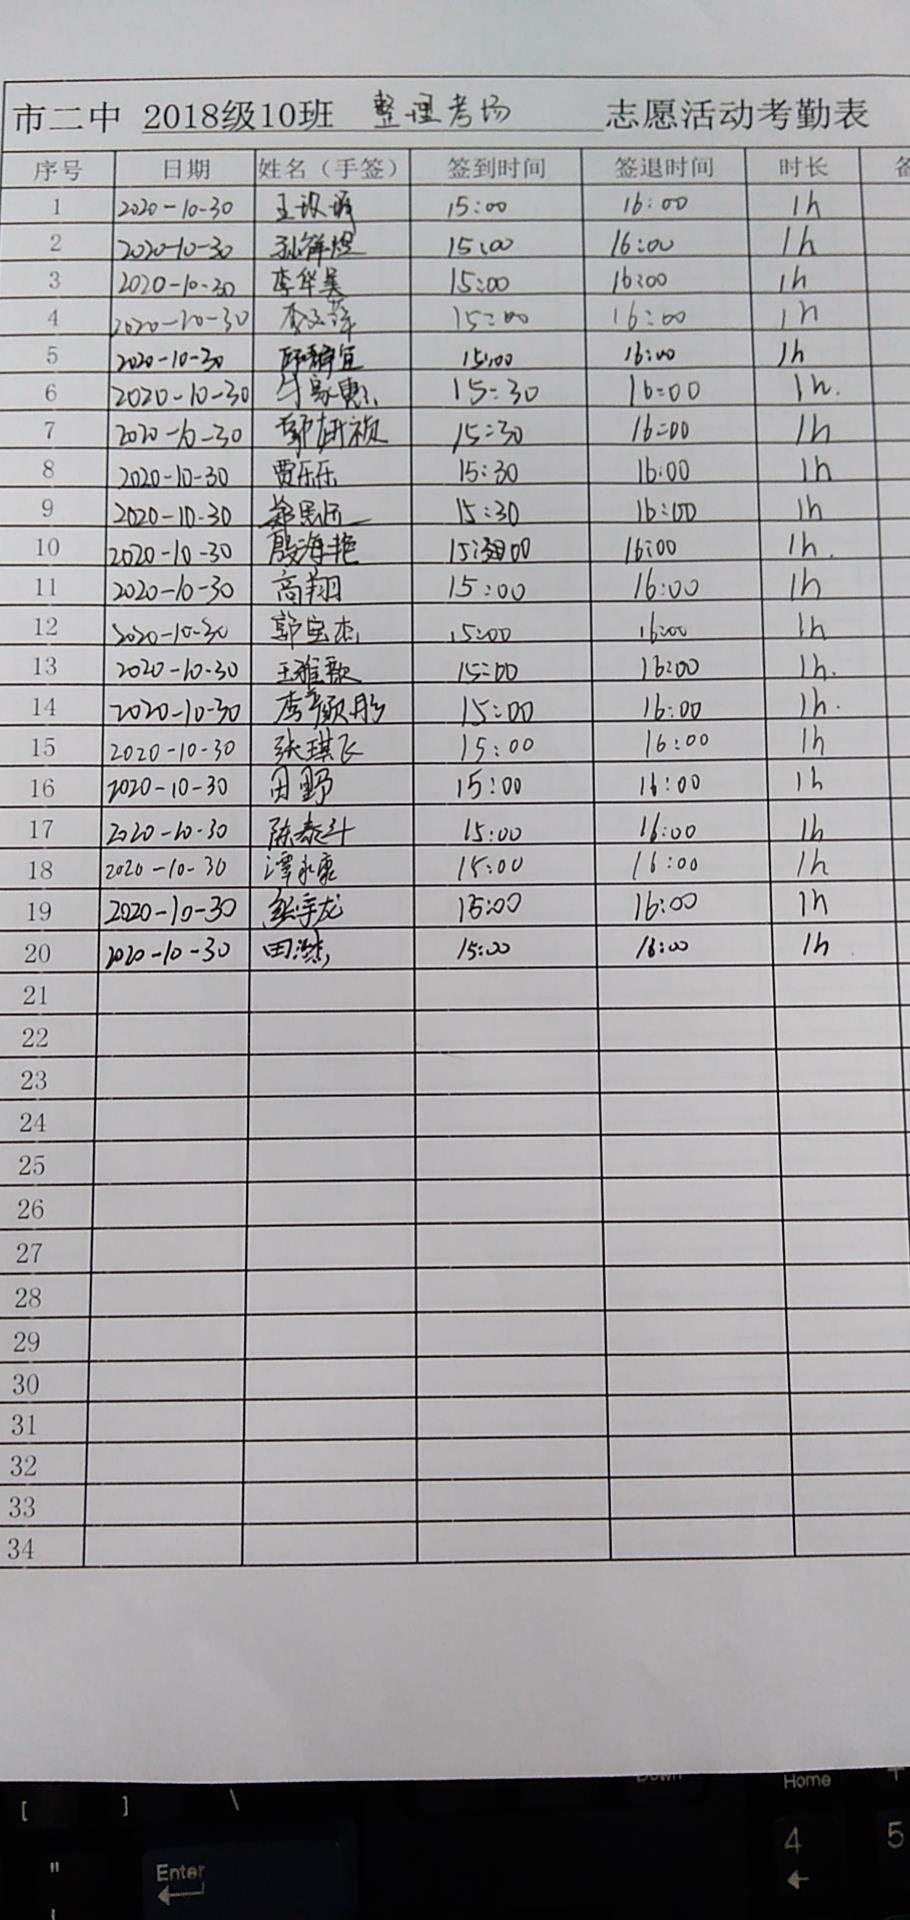 市二中 2018级10班 整理考场 志愿活动考勤表
序号 日期 姓名（手签） 签到时间 签退时间 时长
1 2020-10-30 15:00 16:00 1h
2 2020-10-30 15:00 16:00 1h
3 2020-10-30 李华昊 15:00 16:00 1h
4 2020-10-30 15:00 16:00 1h
5 2020-10-30 15:00 16:00 1h
6 2020-10-30 牛家惠 15:30 16:00 1h.
7 2020-10-30 郭妍祯 15:30 16:00 1h
8 2020-10-30 贾乐乐 15:30 16:00 1h
9 2020-10-30 15:30 16:00 1h
10 2020-10-30 殷海艳 16:00 1h.
11 2020-10-30 高翔 15:00 16:00 1h
12 2020-10-30 郭宝杰 15:00 16:00 1h
13 2020-10-30 王雅歌 15:00 16:00 1h.
14 2020-10-30 李颜彤 15:00 16:00 1h.
15 2020-10-30 张琪飞 15:00 16:00 1h
16 2020-10-30 田野 15:00 16:00 1h
17 2020-10-30 陈泰斗 15:00 16:00 1h
18 2020-10-30 谭永康 15:00 16:00 1h
19 2020-10-30 张宇龙 15:00 16:00 1h
20 2020-10-30 15:00 16:00 1h
21
22
23
24
25
26
27
28
29
30
31
32
33
34
Home
[ ] \
4 5
" Enter